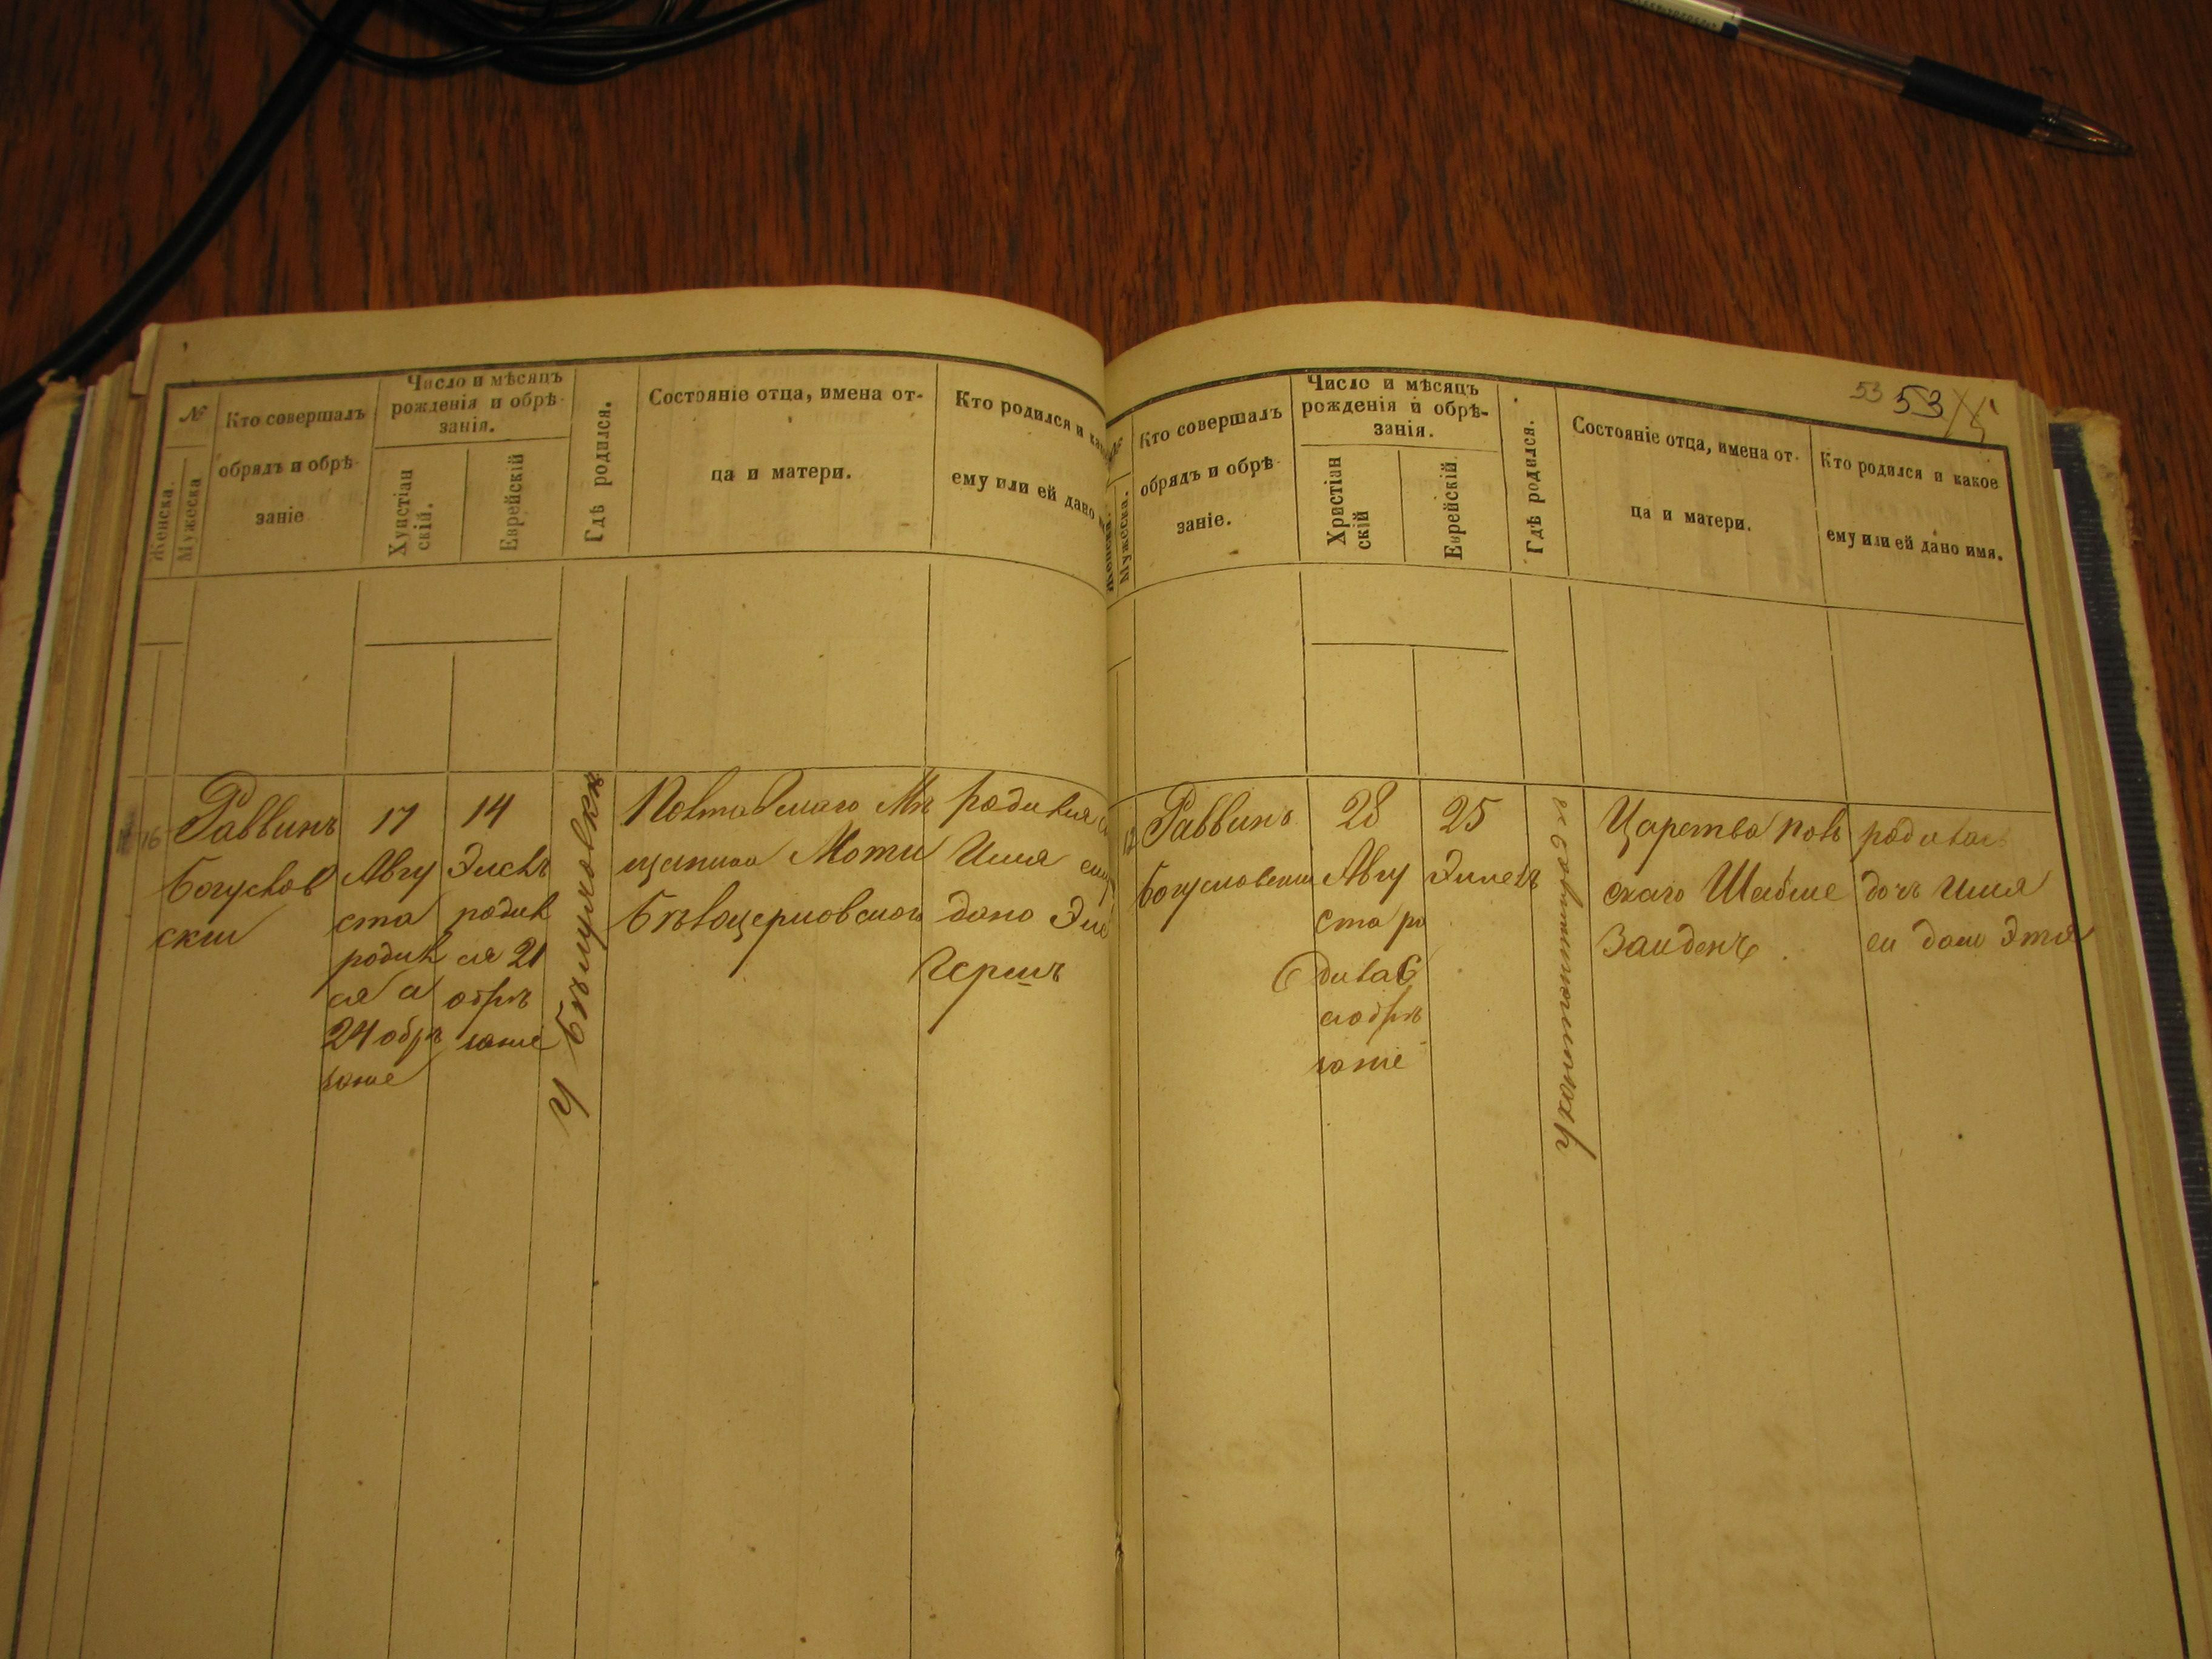 №
Женска.
Мужеска
Кто совершалъ
обрядъ и обрѣ-
заніе
Число и мѣсяцъ
рожденія и обрѣ-
занія.
Христіан
скій.
Еврейскій
Гдѣ родился.
Состояніе отца, имена от-
ца и матери.
Кто родился и как
ему или ей дано
16
Раввинъ
Богуслов
скии
17
Авгу
ста
родил
ся а
24 обрѣ
зание
14
Элелъ
родил
ся 21
обрѣ
зание
У
Полтавскаго Мѣ
щанина Моти
Бѣлоцерковского
родился
Имя ему
дано Эле
Гершъ
53 53
№
Женска.
Мужеска.
Кто совершалъ
обрядъ и обрѣ-
заніе.
Число и мѣсяцъ
рожденія и обрѣ-
занія.
Христіан
скій
Еврейскій
Гдѣ родился.
Состояніе отца, имена от-
ца и матери.
Кто родился и какое
ему или ей дано имя.
12
Раввинъ
Богусловскии
28
Авгу
ста ро
дилас
обрѣ
зание
25
Элелъ
Царства Пол
скаго Шабше
Занденъ.
родилас
доч имя
еи дано Этя